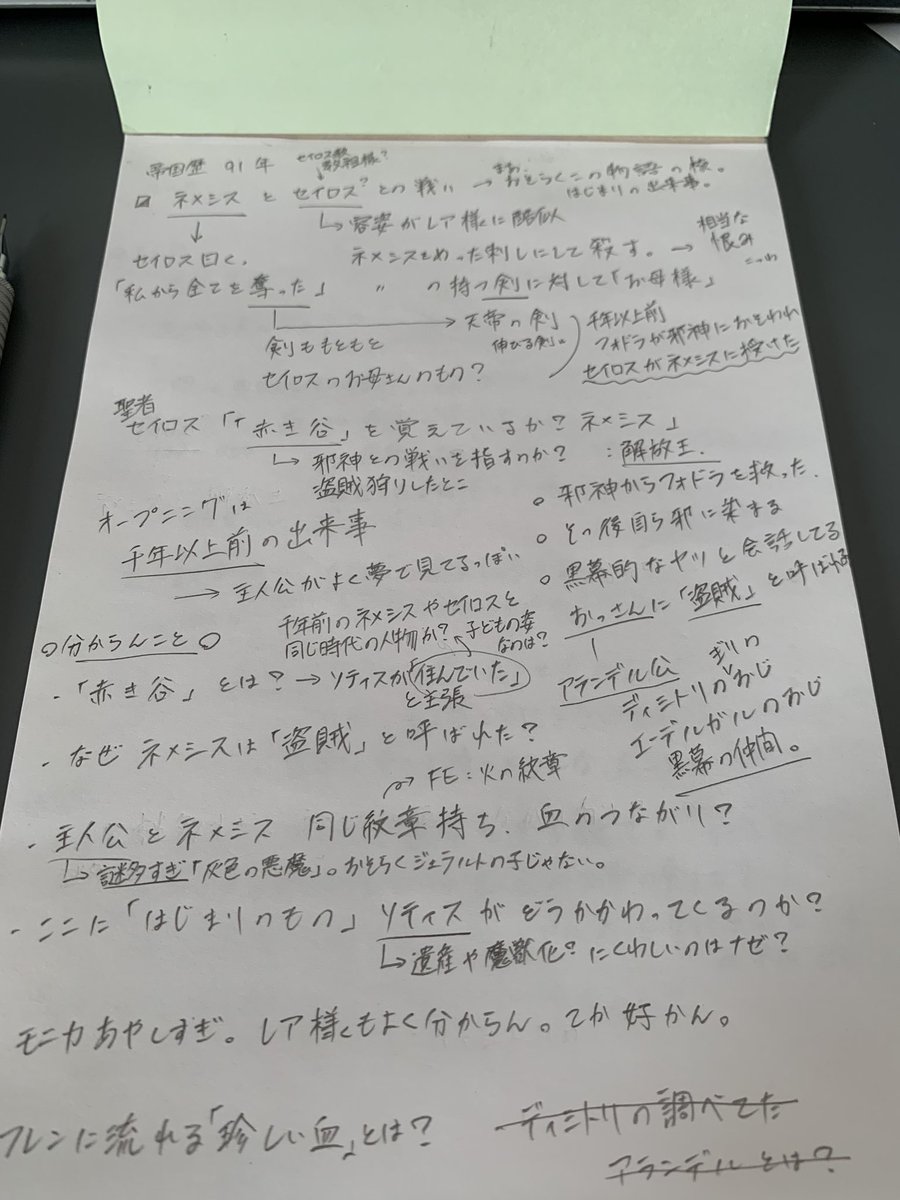 帝国歴 91年
セイロス教 教祖様?
ネメシス と セイロス? との戦い → おそらくこの物語の核。
はじまりの出来事。
↳ 容姿がレア様に酷似
セイロス曰く、
ネメシスをめった刺しにして殺す。→ 相当な恨み
こっわ
「私から全てを奪った」 〃 の持つ剣に対して「お母様」
→ 天帝の剣
伸びる剣。
剣ももともと
セイロスのお母さんのもの?
千年以上前
フォドラが邪神におそわれ
セイロスがネメシスに授けた
聖者
セイロス「「赤き谷」を覚えているか? ネメシス」
↳ 邪神との戦いを指すのか?
盗賊狩りしたとこ
:解放王.
○ 邪神からフォドラを救った.
○ その後自ら邪に染まる
○ 黒幕的なヤツと会話してる
おっさんに「盗賊」と呼ばれる
アランデル公
ディミトリのぎりのおじ
エーデルガルのおじ
黒幕の仲間。
オープニングは
千年以上前の出来事
→ 主人公がよく夢で見てるっぽい
○分からんこと○
千年前のネメシスやセイロスと
同じ時代の人物か? 子どもの姿
なのは?
・「赤き谷」とは? → ソティスが「住んでいた」
と主張
・なぜ ネメシスは「盗賊」と呼ばれた?
FE:火の紋章
・主人公とネメシス 同じ紋章持ち、血のつながり?
↳ 謎多すぎ「灰色の悪魔」。おそらくジェラルトの子じゃない。
・ここに「はじまりのもの」ソティスがどうかかわってくるのか?
↳ 遺産や魔獣化? にくわしいのはナゼ?
モニカあやしすぎ。レア様もよく分からん。てか好かん。
フレンに流れる「珍しい血」とは?
ディミトリの調べてた
アランデルとは?